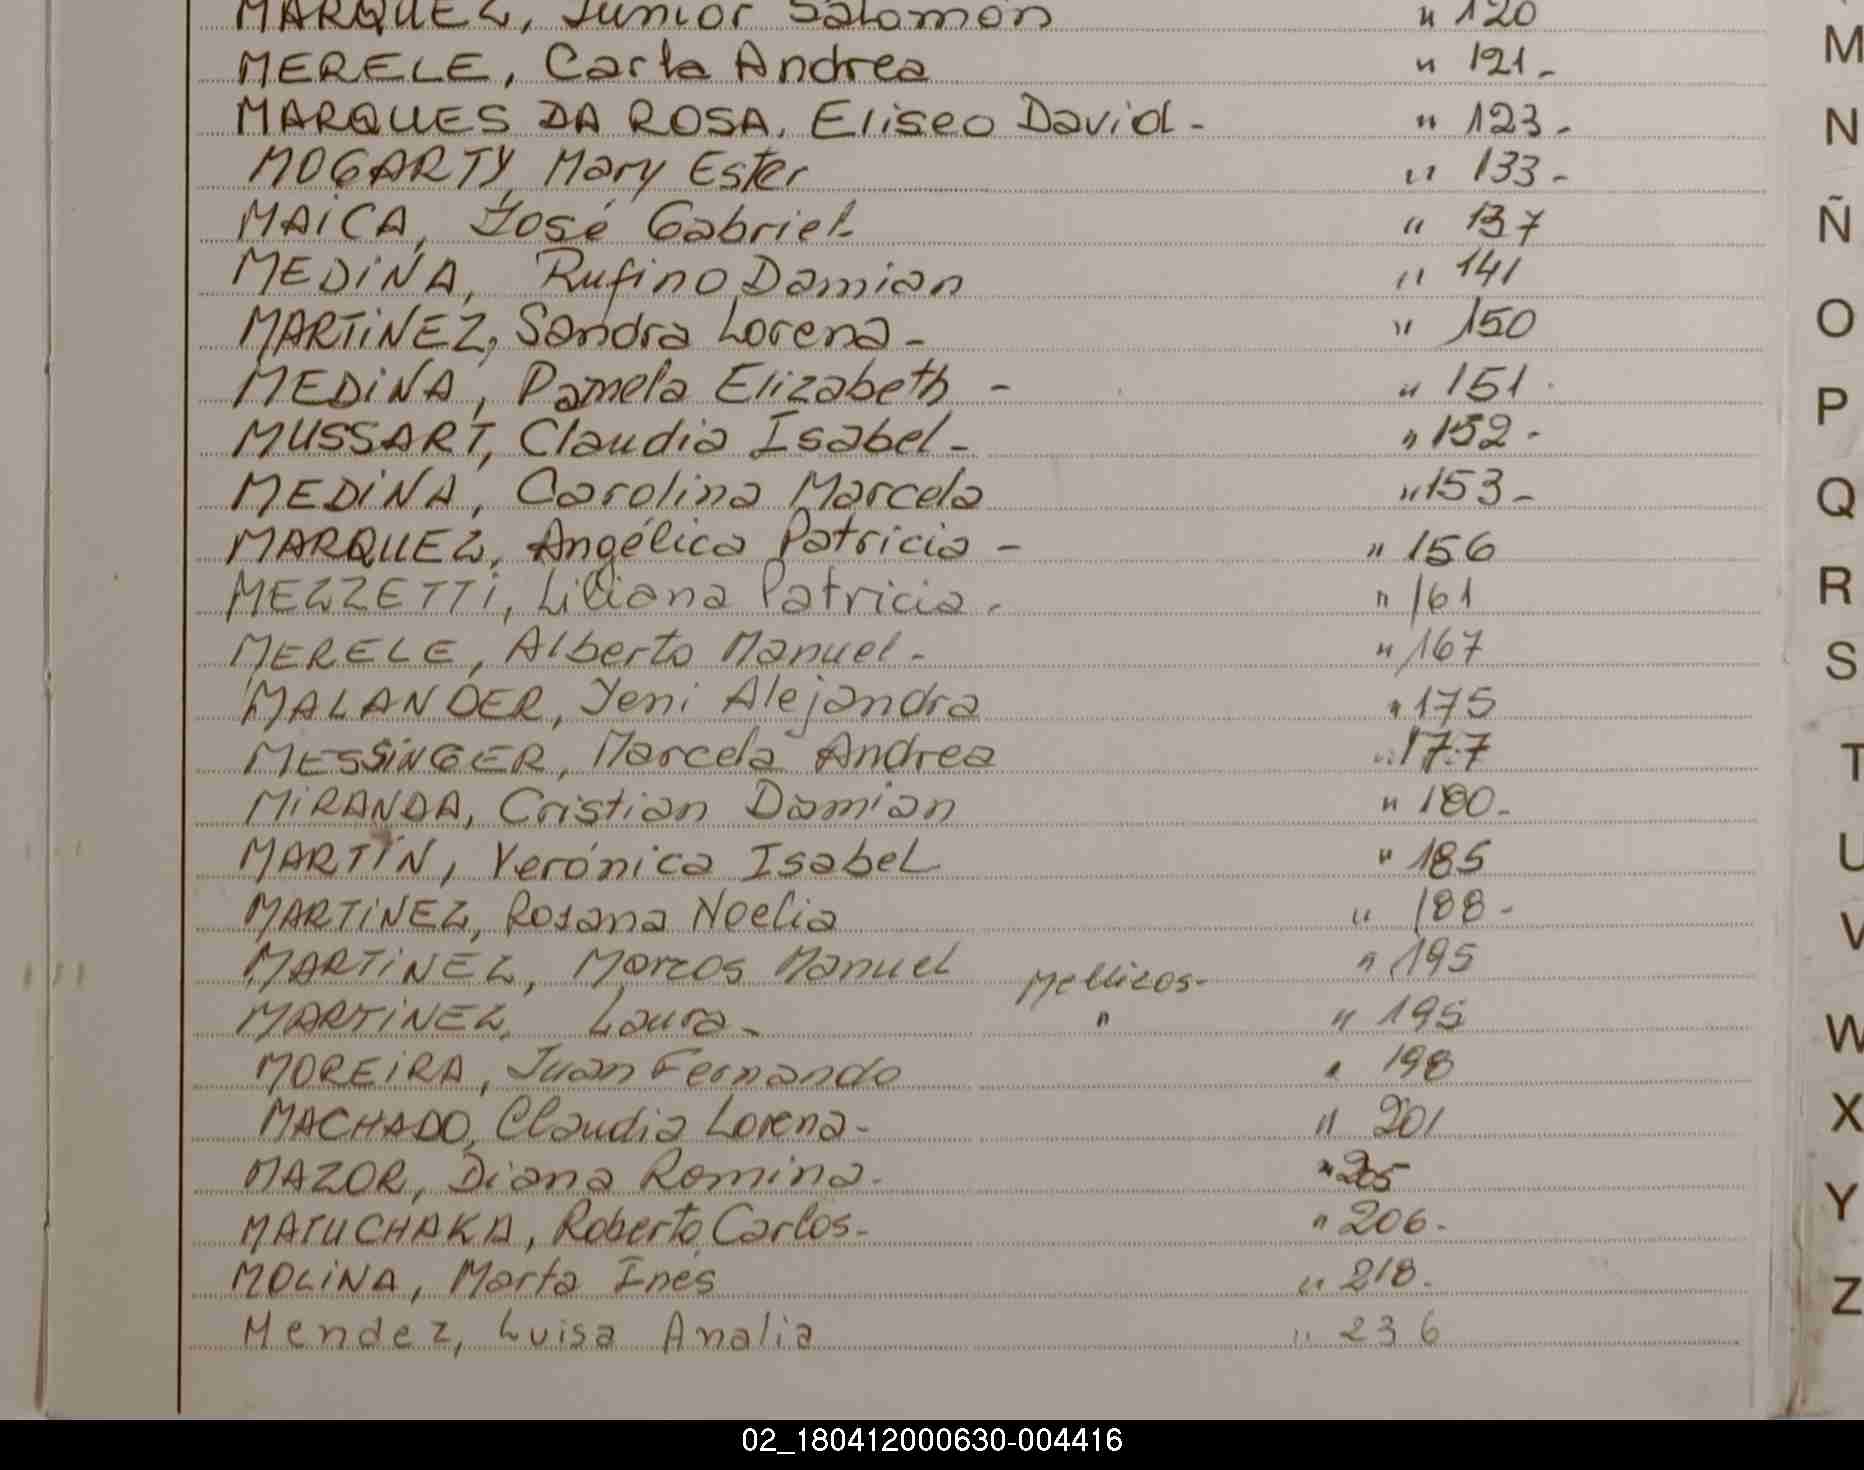 MARQUEZ, Junior Salomón " 120
MERELE, Carla Andrea " 121-
MARQUES DA ROSA, Eliseo David - " 123-
MOGARTY, Mary Ester " 133-
MAICA, José Gabriel " 137
MEDINA, Rufino Damian " 141
MARTINEZ, Sandra Lorena - " 150
MEDINA, Pamela Elizabeth - " 151
MUSSART, Claudia Isabel - " 152-
MEDINA, Carolina Marcela " 153-
MARQUEZ, Angélica Patricia - " 156
MEZZETTI, Liliana Patricia. " 161
MERELE, Alberto Manuel - " 167
MALANDER, Yeni Alejandra " 175
MESSINGER, Marcela Andrea " 177
MIRANDA, Cristian Damian " 180-
MARTÍN, Verónica Isabel " 185
MARTINEZ, Rosana Noelia " 188-
MARTINEZ, Marcos Manuel Mellizos- " 195
MARTINEZ, Laura - " " 195
MOREIRA, Juan Fernando " 198
MACHADO, Claudia Lorena - " 201
MAZOR, Diana Romina. " 205
MATUCHAKA, Roberto Carlos - " 206-
MOLINA, Marta Ines " 218.
Mendez, Luisa Analia " 236
M
N
Ñ
O
P
Q
R
S
T
U
V
W
X
Y
Z
02_180412000630-004416